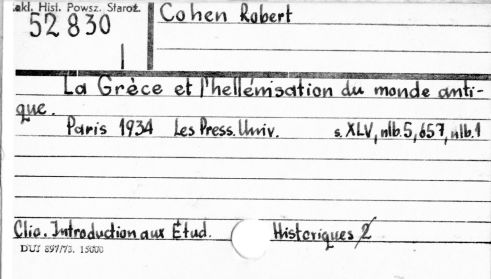 akl. Hist. Powsz. Staroż.
52 830
Cohen Robert
La Grèce et l'hellénisation du monde anti-
que.
Paris 1934 Les Press. Univ. s. XLV, nlb. 5, 657, nlb. 1
Clio. Introduction aux Étud. Historiques 2
DUJ 897/73. 15000